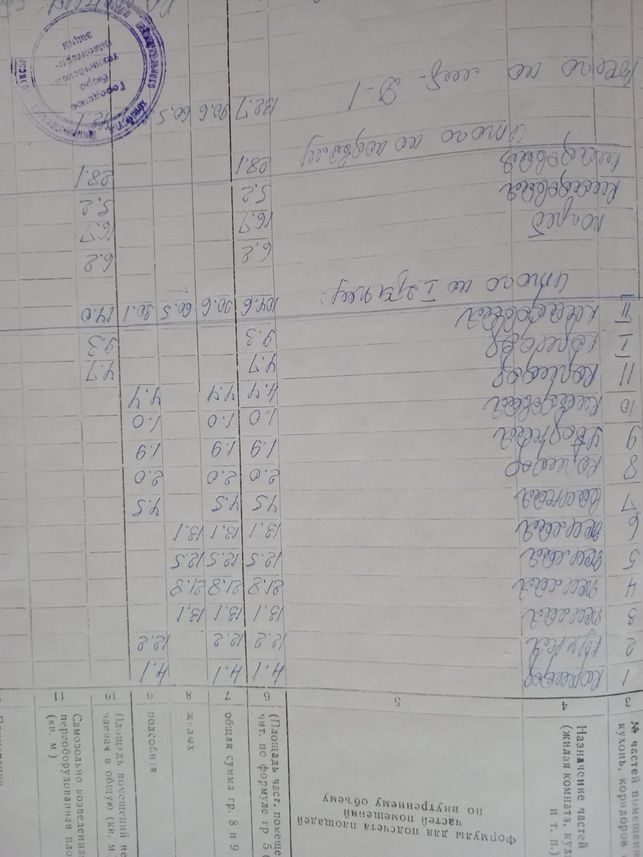 № частей помещен
кухонь, коридоров
Назначение частей
(жилая комната, кух
и т. п.)
Формулы для подсчета площадей
частей помещений
по внутреннему объему
(Площадь част. помеще
чит. по формуле гр 5 (
общая сумма гр. 8 и 9
жилых
подсобная
Площадь помещений не
чаемая в общую (кв. м
Самовольно возведенная
переоборудованная пло
(кв. м)
3 4 5 6 7 8 9 10 11
1 коридор 4.1 4.1 4.1
2 кухня 12.2 12.2 12.2
3 жилая 13.1 13.1 13.1
4 жилая 21.8 21.8 21.8
5 жилая 12.5 12.5 12.5
6 жилая 13.1 13.1 13.1
7 ванная 4.5 4.5 4.5
8 коридор 2.0 2.0 2.0
9 уборная 1.9 1.9 1.9
10 кладовая 1.0 1.0 1.0
11 4.4 4.4 4.4
коридор 4.7 4.7
I коридор 9.3 9.3
II кладовая
Итого по I этажу: 104.6 90.6 60.5 30.1 14.0
6.2 6.2
погреб 16.7 16.7
кладовая 5.2 5.2
кладовая 28.1 28.1
Итого по подвалу
Всего по 132.7 90.6 60.5
Городское
бюро
технической
инвентари-
зации